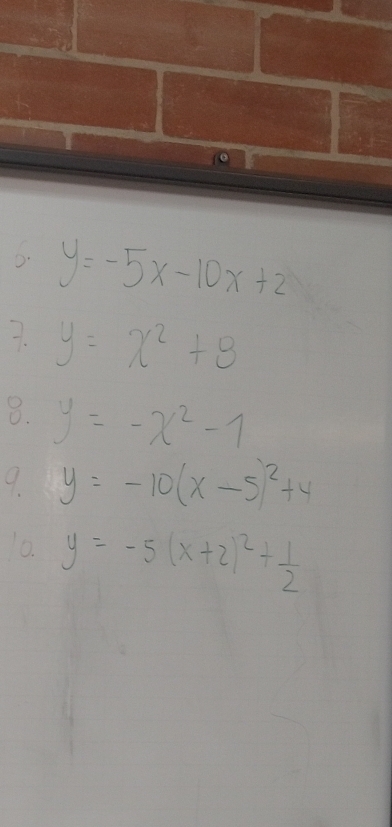 6. y = -5x - 10x + 2
7. y = x² + 8
8. y = -x² - 1
9. y = -10(x - 5)² + 4
10. y = -5(x + 2)² + 1/2